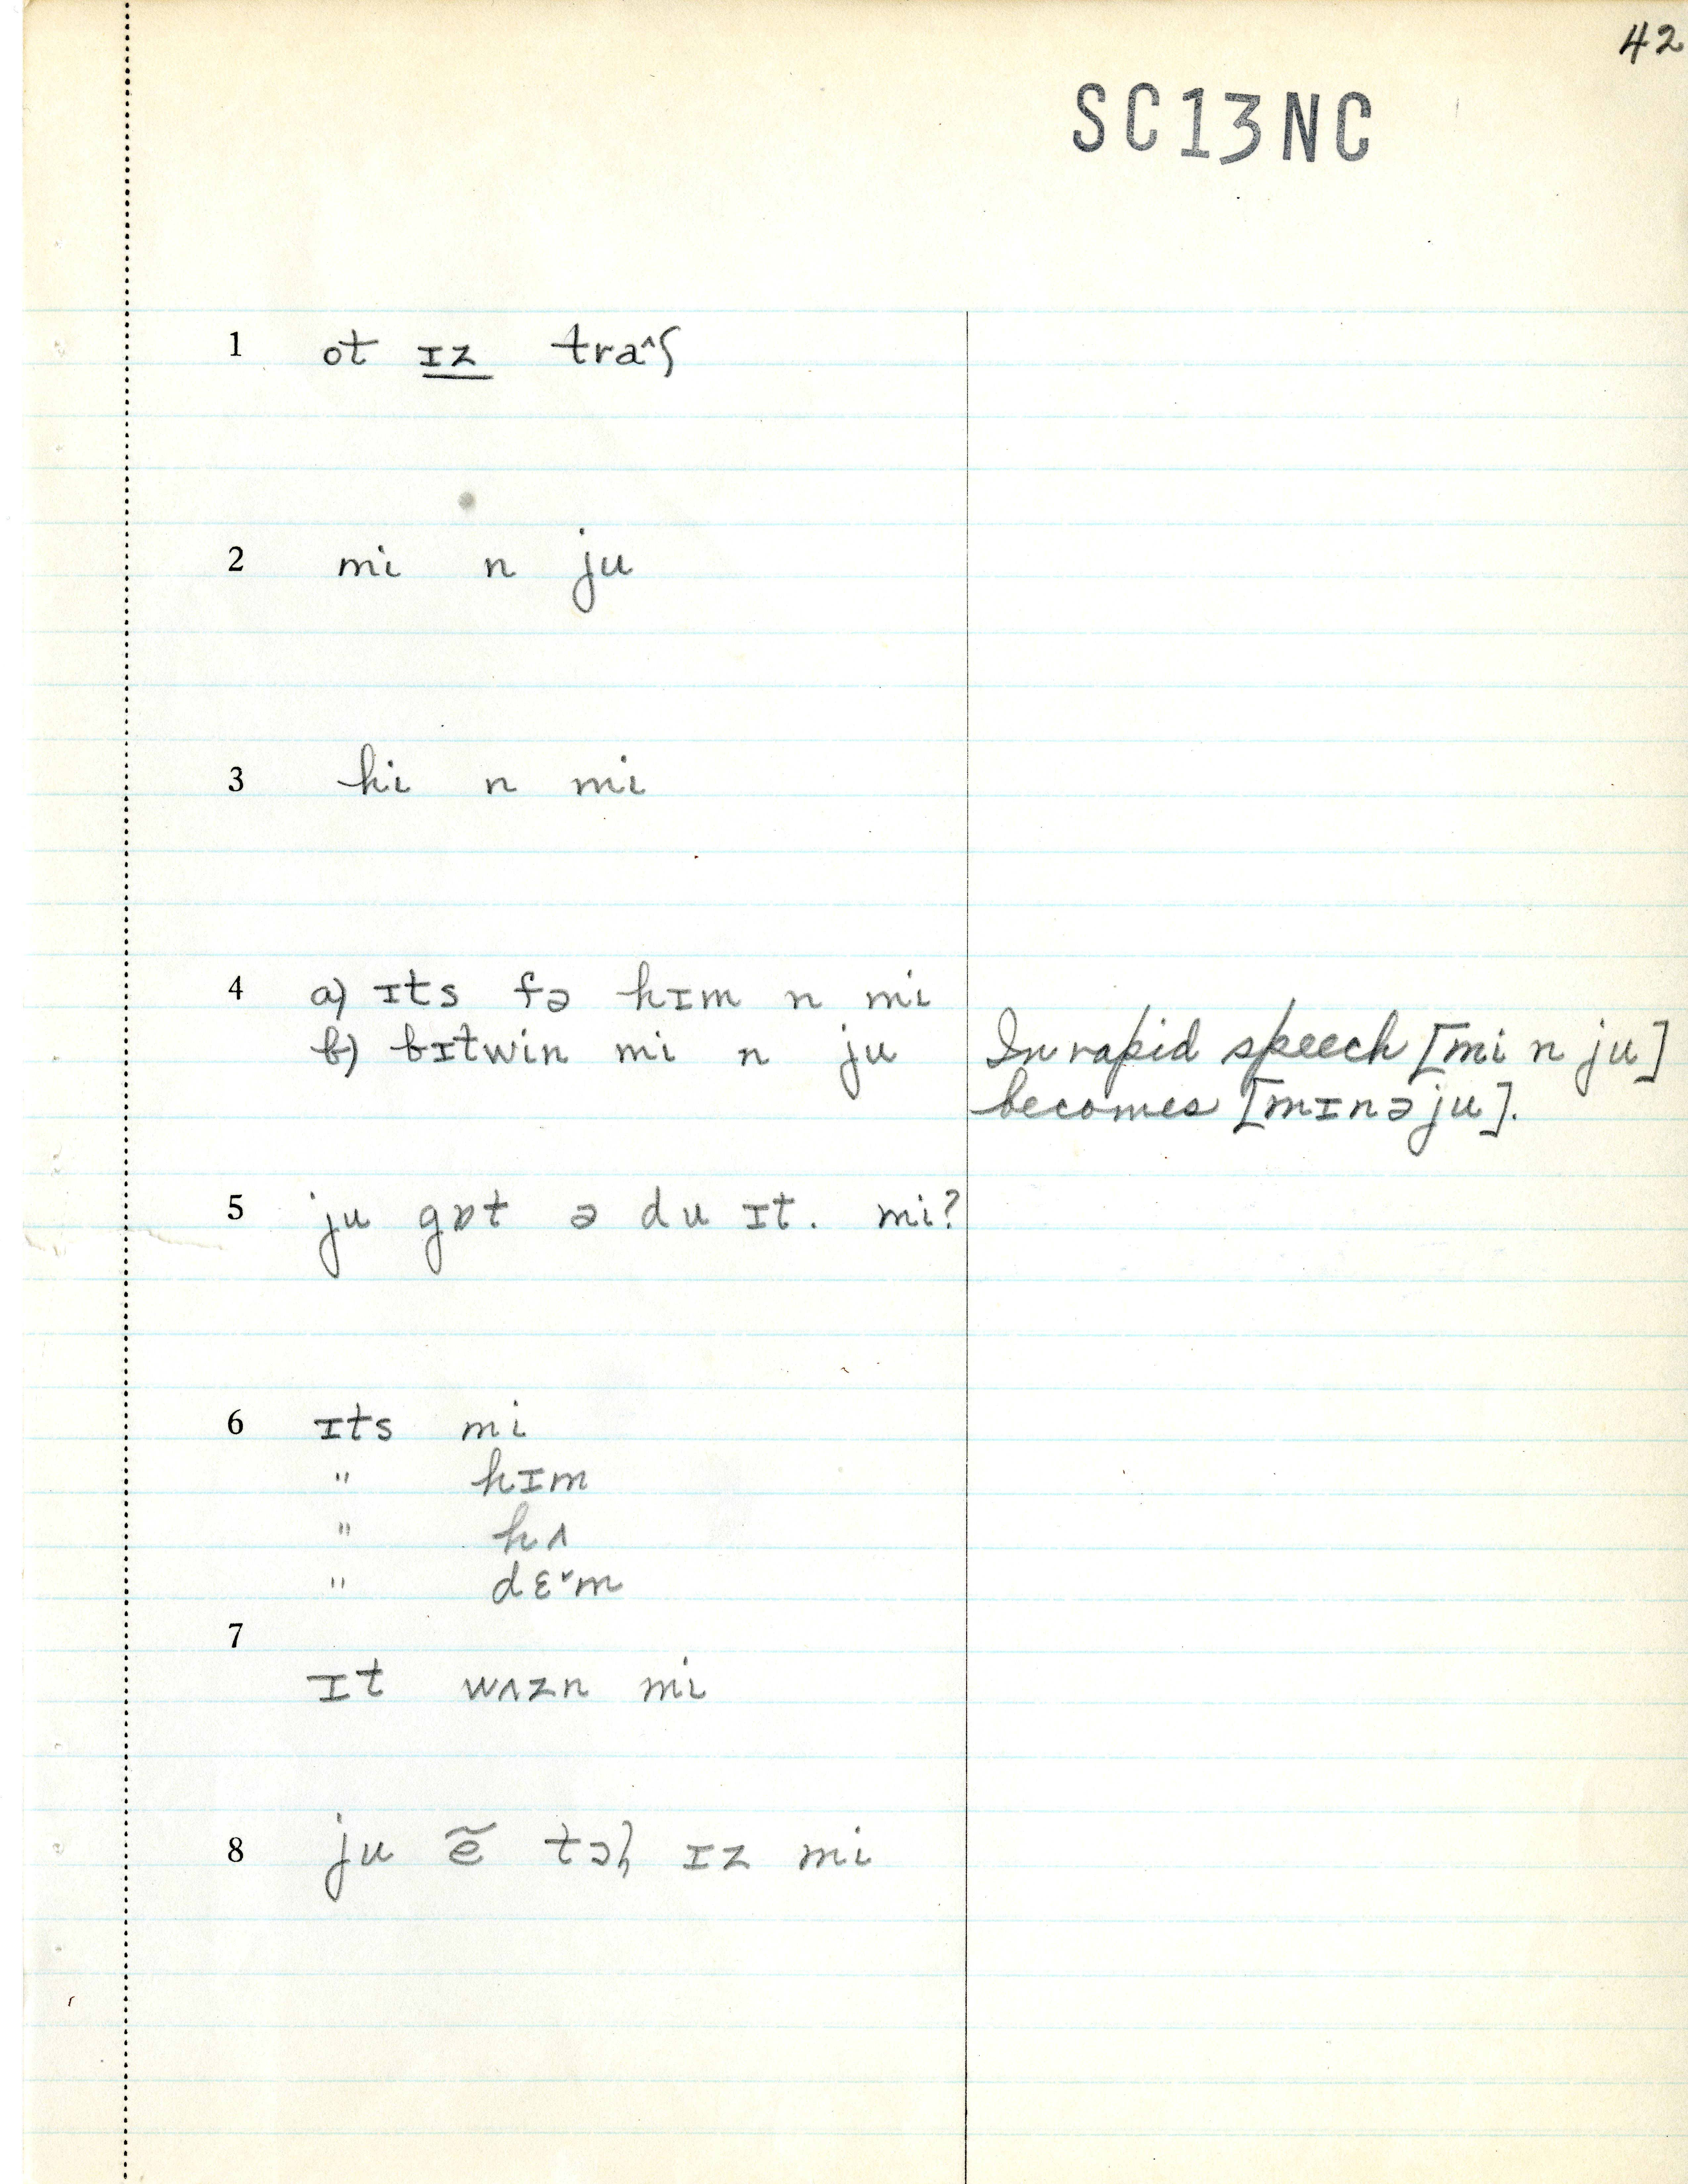 42
SC13NC
1 ot ɪz traˆʃ
2 mi n ju
3 hi n mi
4 a) ɪts fə hɪm n mi
b) bɪtwin mi n ju
In rapid speech [mi n ju]
becomes [mɪnəju].
5 ju gɒt ə du ɪt. mi?
6 ɪts mi
" hɪm
" hʌ
" dɛˇm
7
ɪt wʌzn mi
8 ju ẽ ɪz mi